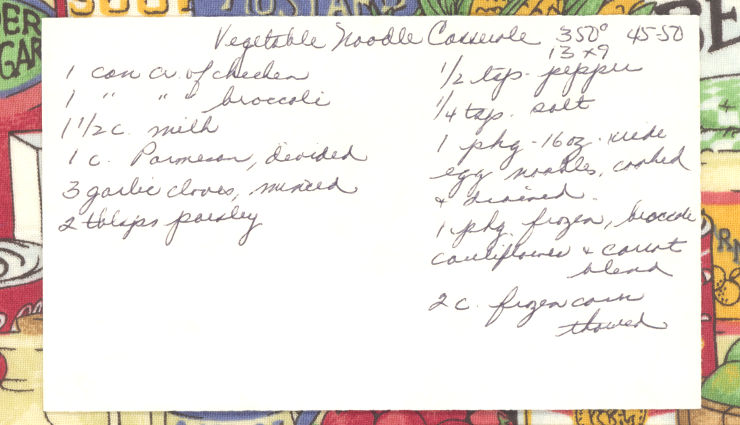 Vegetable Noodle Casserole 350° 45-50
13 x 9
1 can cr. of chicken
1 " " " broccoli
1 1/2 c. milk
1 c. Parmesan, divided
3 garlic cloves, minced
2 tblsps parsley
1/2 tsp. pepper
1/4 tsp. salt
1 pkg - 16 oz. wide
egg noodles, cooked
& drained.
1 pkg. frozen, broccoli
cauliflower & carrot
blend
2 c. frozen corn
thawed
MUSTARD